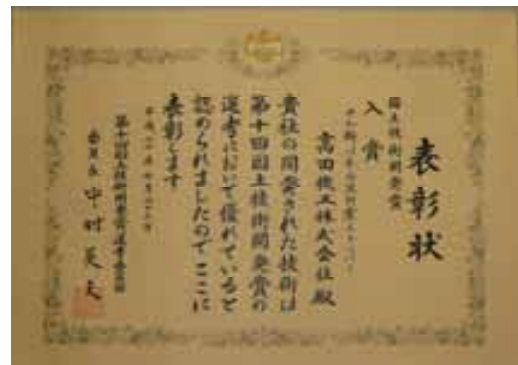 表彰状
国土技術開発賞
入賞
高田機工株式会社 殿
貴社の開発された技術は
第十回国土技術開発賞の
選考において優れていると
認められましたのでここに
表彰します
平成二十年
第十回国土技術開発賞選考委員会
委員長 中村英夫